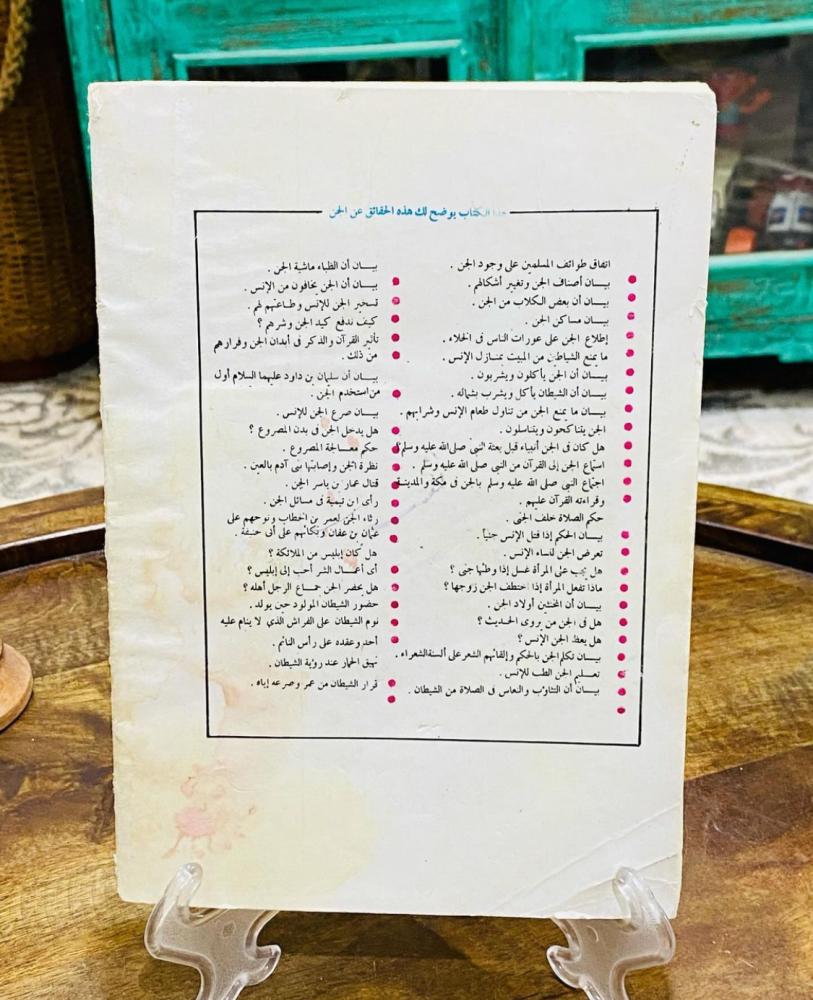 هذا الكتاب يوضح لك هذه الحقائق عن الجن
اتفاق طوائف المسلمين على وجود الجن .
بيـــان أصناف الجن وتغيير أشكالهم .
بيـــان أن بعض الكلاب من الجن .
بيـــان مساكن الجن .
إطلاع الجن على عورات الناس فى الخلاء .
ما يمنع الشياطين من المبيت بمنـازل الإنس .
بيـــان أن الجن يأكلون ويشربون .
بيـــان أن الشيطان يأكل ويشرب بشماله .
بيـــان ما يمنع الجن من تناول طعام الإنس وشرابهم .
الجن يتناكحون ويتناسلون .
هل كان فى الجن أنبياء قبل بعثة النبى صلى الله عليه وسلم؟
استماع الجن إلى القرآن من النبى صلى الله عليه وسلم .
اجتماع النبى صلى الله عليه وسلم بالجن فى مكة والمدينـة
وقراءته القرآن عليهم .
حكم الصلاة خلف الجنى .
بيـــان الحكم إذا قتل الإنس جنياً .
تعرض الجن لنساء الإنس .
هل يجب على المرأة غسل إذا وطئها جنى ؟
ماذا تفعل المرأة إذا اختطف الجن زوجها ؟
بيـــان أن المخنثين أولاد الجن .
هل فى الجن من يروى الحديث ؟
هل يعظ الجن الإنس ؟
بيـــان تكلم الجن بالحكم وإلقائهم الشعر على ألسنة الشعراء .
تعـــليم الجن الطب للإنس .
بيـــان أن التثاؤب والنعاس فى الصلاة من الشيطان .
بيـــان أن الظباء ماشية الجن .
بيـــان أن الجن يخافون من الإنس .
تسخير الجن للإنس وطـاعتهم لهم .
كيف ندفع كيد الجن وشرهم ؟
تأثير القرآن والذكر فى أبدان الجن وفرارهم
من ذلك .
بيـــان أن سليمان بن داود عليهما السلام أول
من استخدم الجن .
بيـــان صرع الجن للإنس .
هل يدخل الجن فى بدن المصروع ؟
حكم معـــالجة المصروع .
نظرة الجن وإصابتها بنى آدم بالعين .
قتال عمار بن ياسر الجن .
رأى ابن تيمية فى مسائل الجن .
رثاء الجن لعمر بن الخطاب ونوحهم على
عثمان بن عفان وبكائهم على أبى حنيفة .
هل كان إبليس من الملائكة ؟
أى أعمـــال الشر أحب إلى إبليس ؟
هل يحضر الجن جمـــاع الرجل أهله ؟
حضور الشيطان المولود حين يولد .
نوم الشيطان على الفراش الذي لا ينام عليه
أحد وعقده على رأس النائم .
نهيق الحمار عند رؤية الشيطان .
فرار الشيطان من عمر وصرعه إياه .